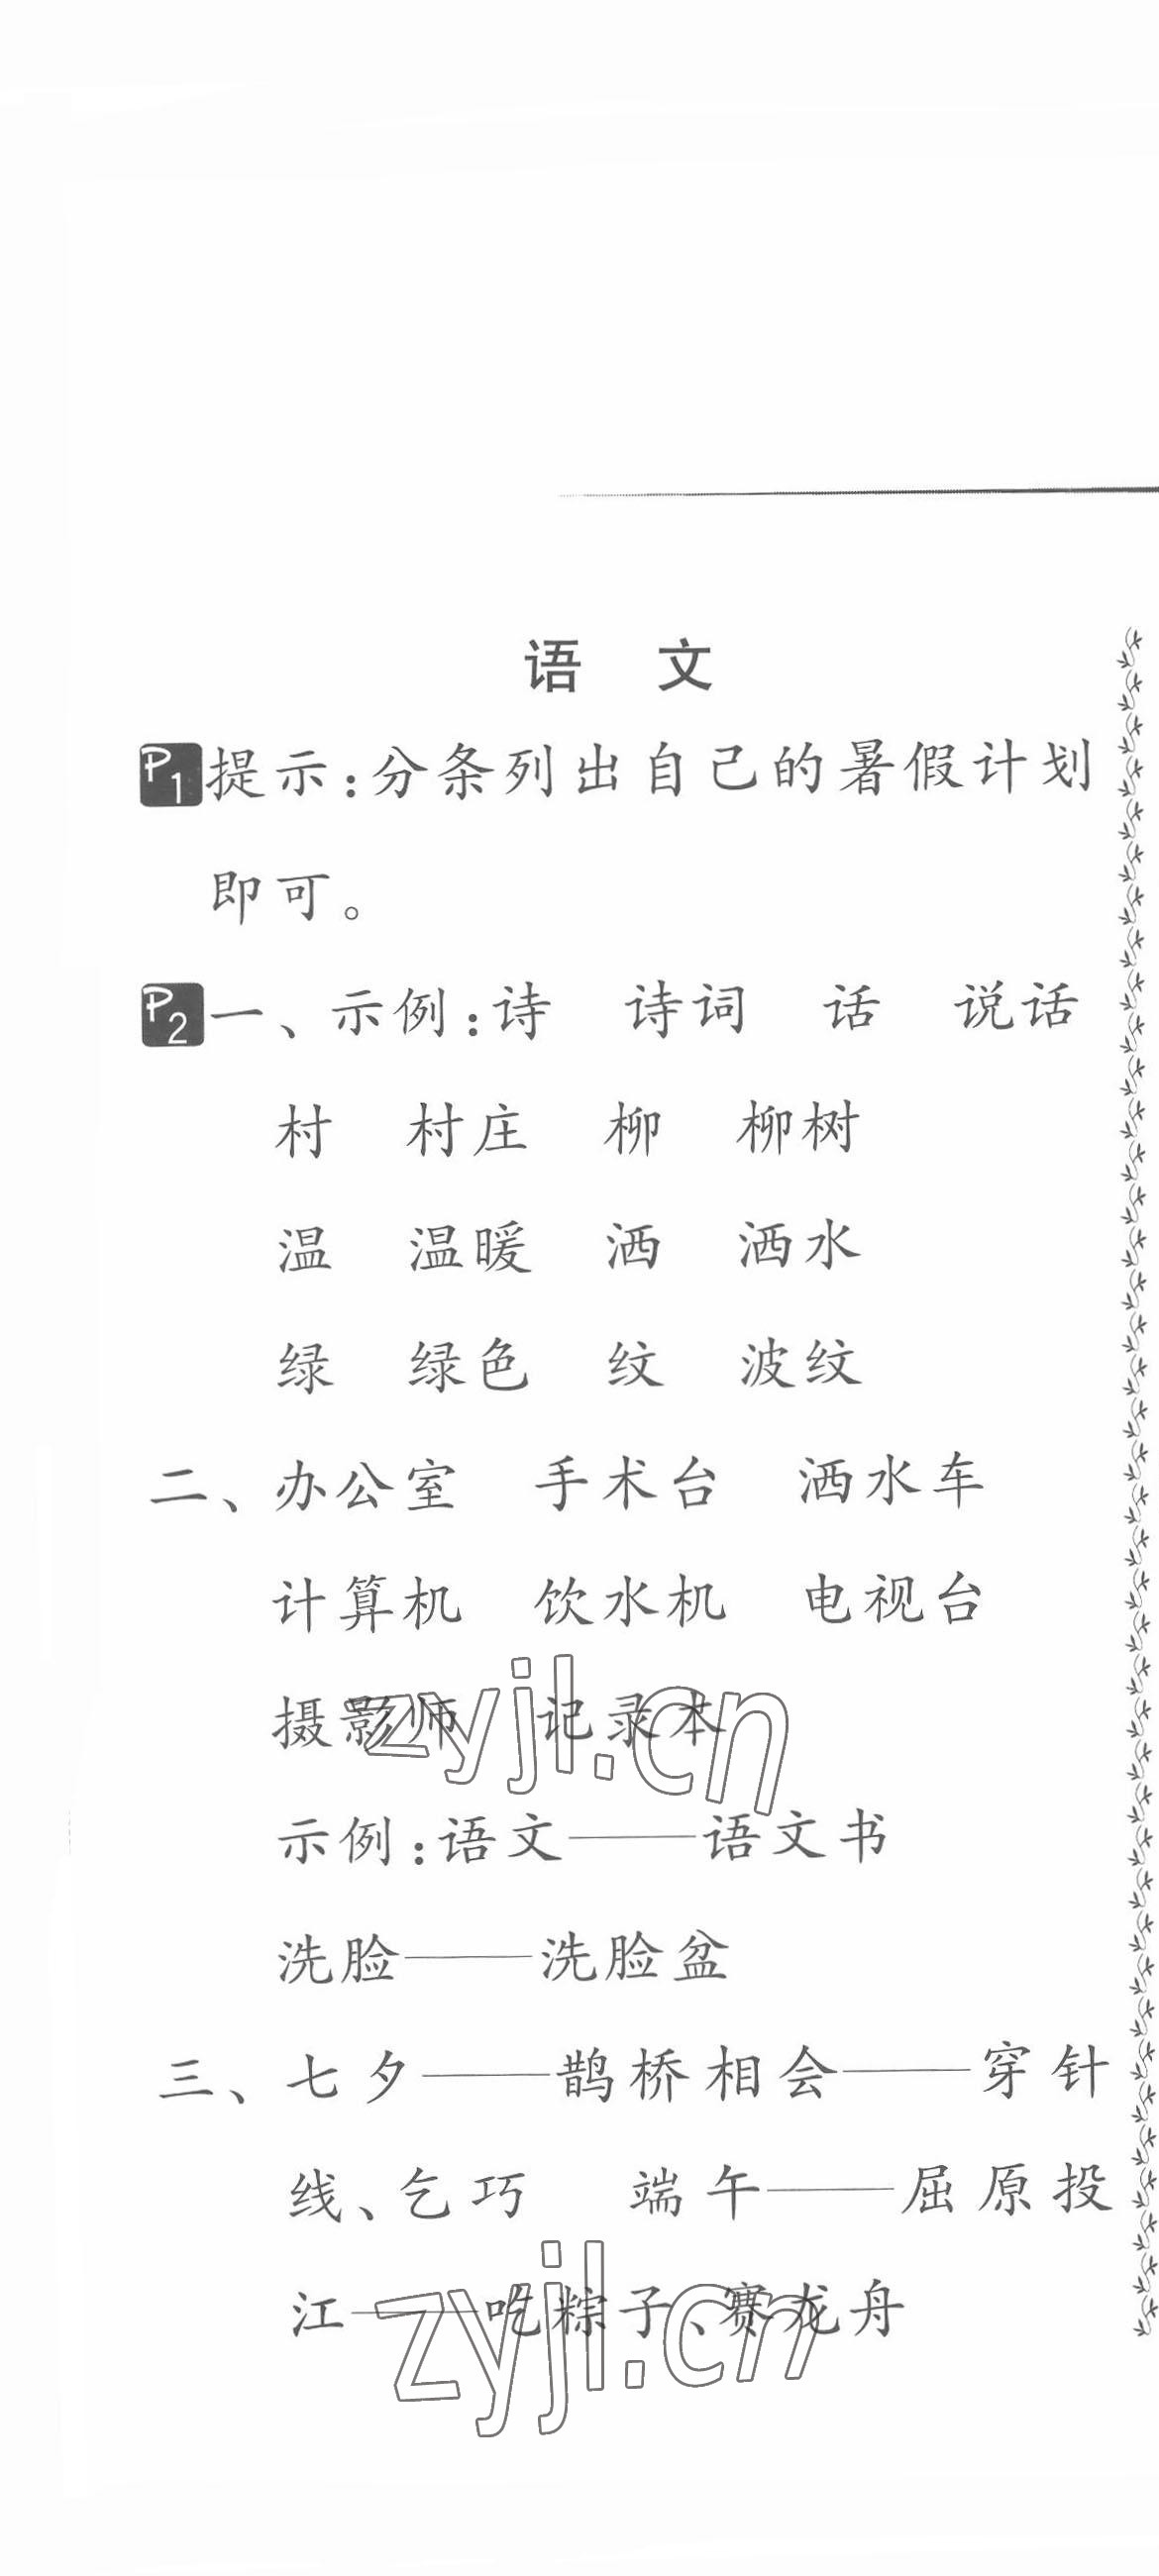 语 文
P1 提示:分条列出自己的暑假计划
即可。
P2 一、示例:诗 诗词 话 说话
村 村庄 柳 柳树
温 温暖 洒 洒水
绿 绿色 纹 波纹
二、办公室 手术台 洒水车
计算机 饮水机 电视台
摄影师 记录本
zyjl.cn
示例:语文——语文书
洗脸——洗脸盆
三、七夕——鹊桥相会——穿针
线、乞巧 端午——屈原投
江——吃粽子、赛龙舟
zyjl.cn